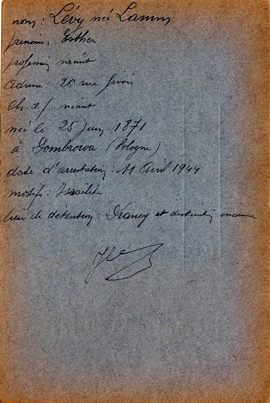 nom: Lévy née Lamm
prénom: Esther
profession néant
Adresse: 26 rue
ch. d. f. néant
née le 25 Juin 1871
à Dombrowa (Pologne)
date d'arrestation: 11 Avril 1944
motif: Israélite
lieu de détention: Drancy et destination inconnue